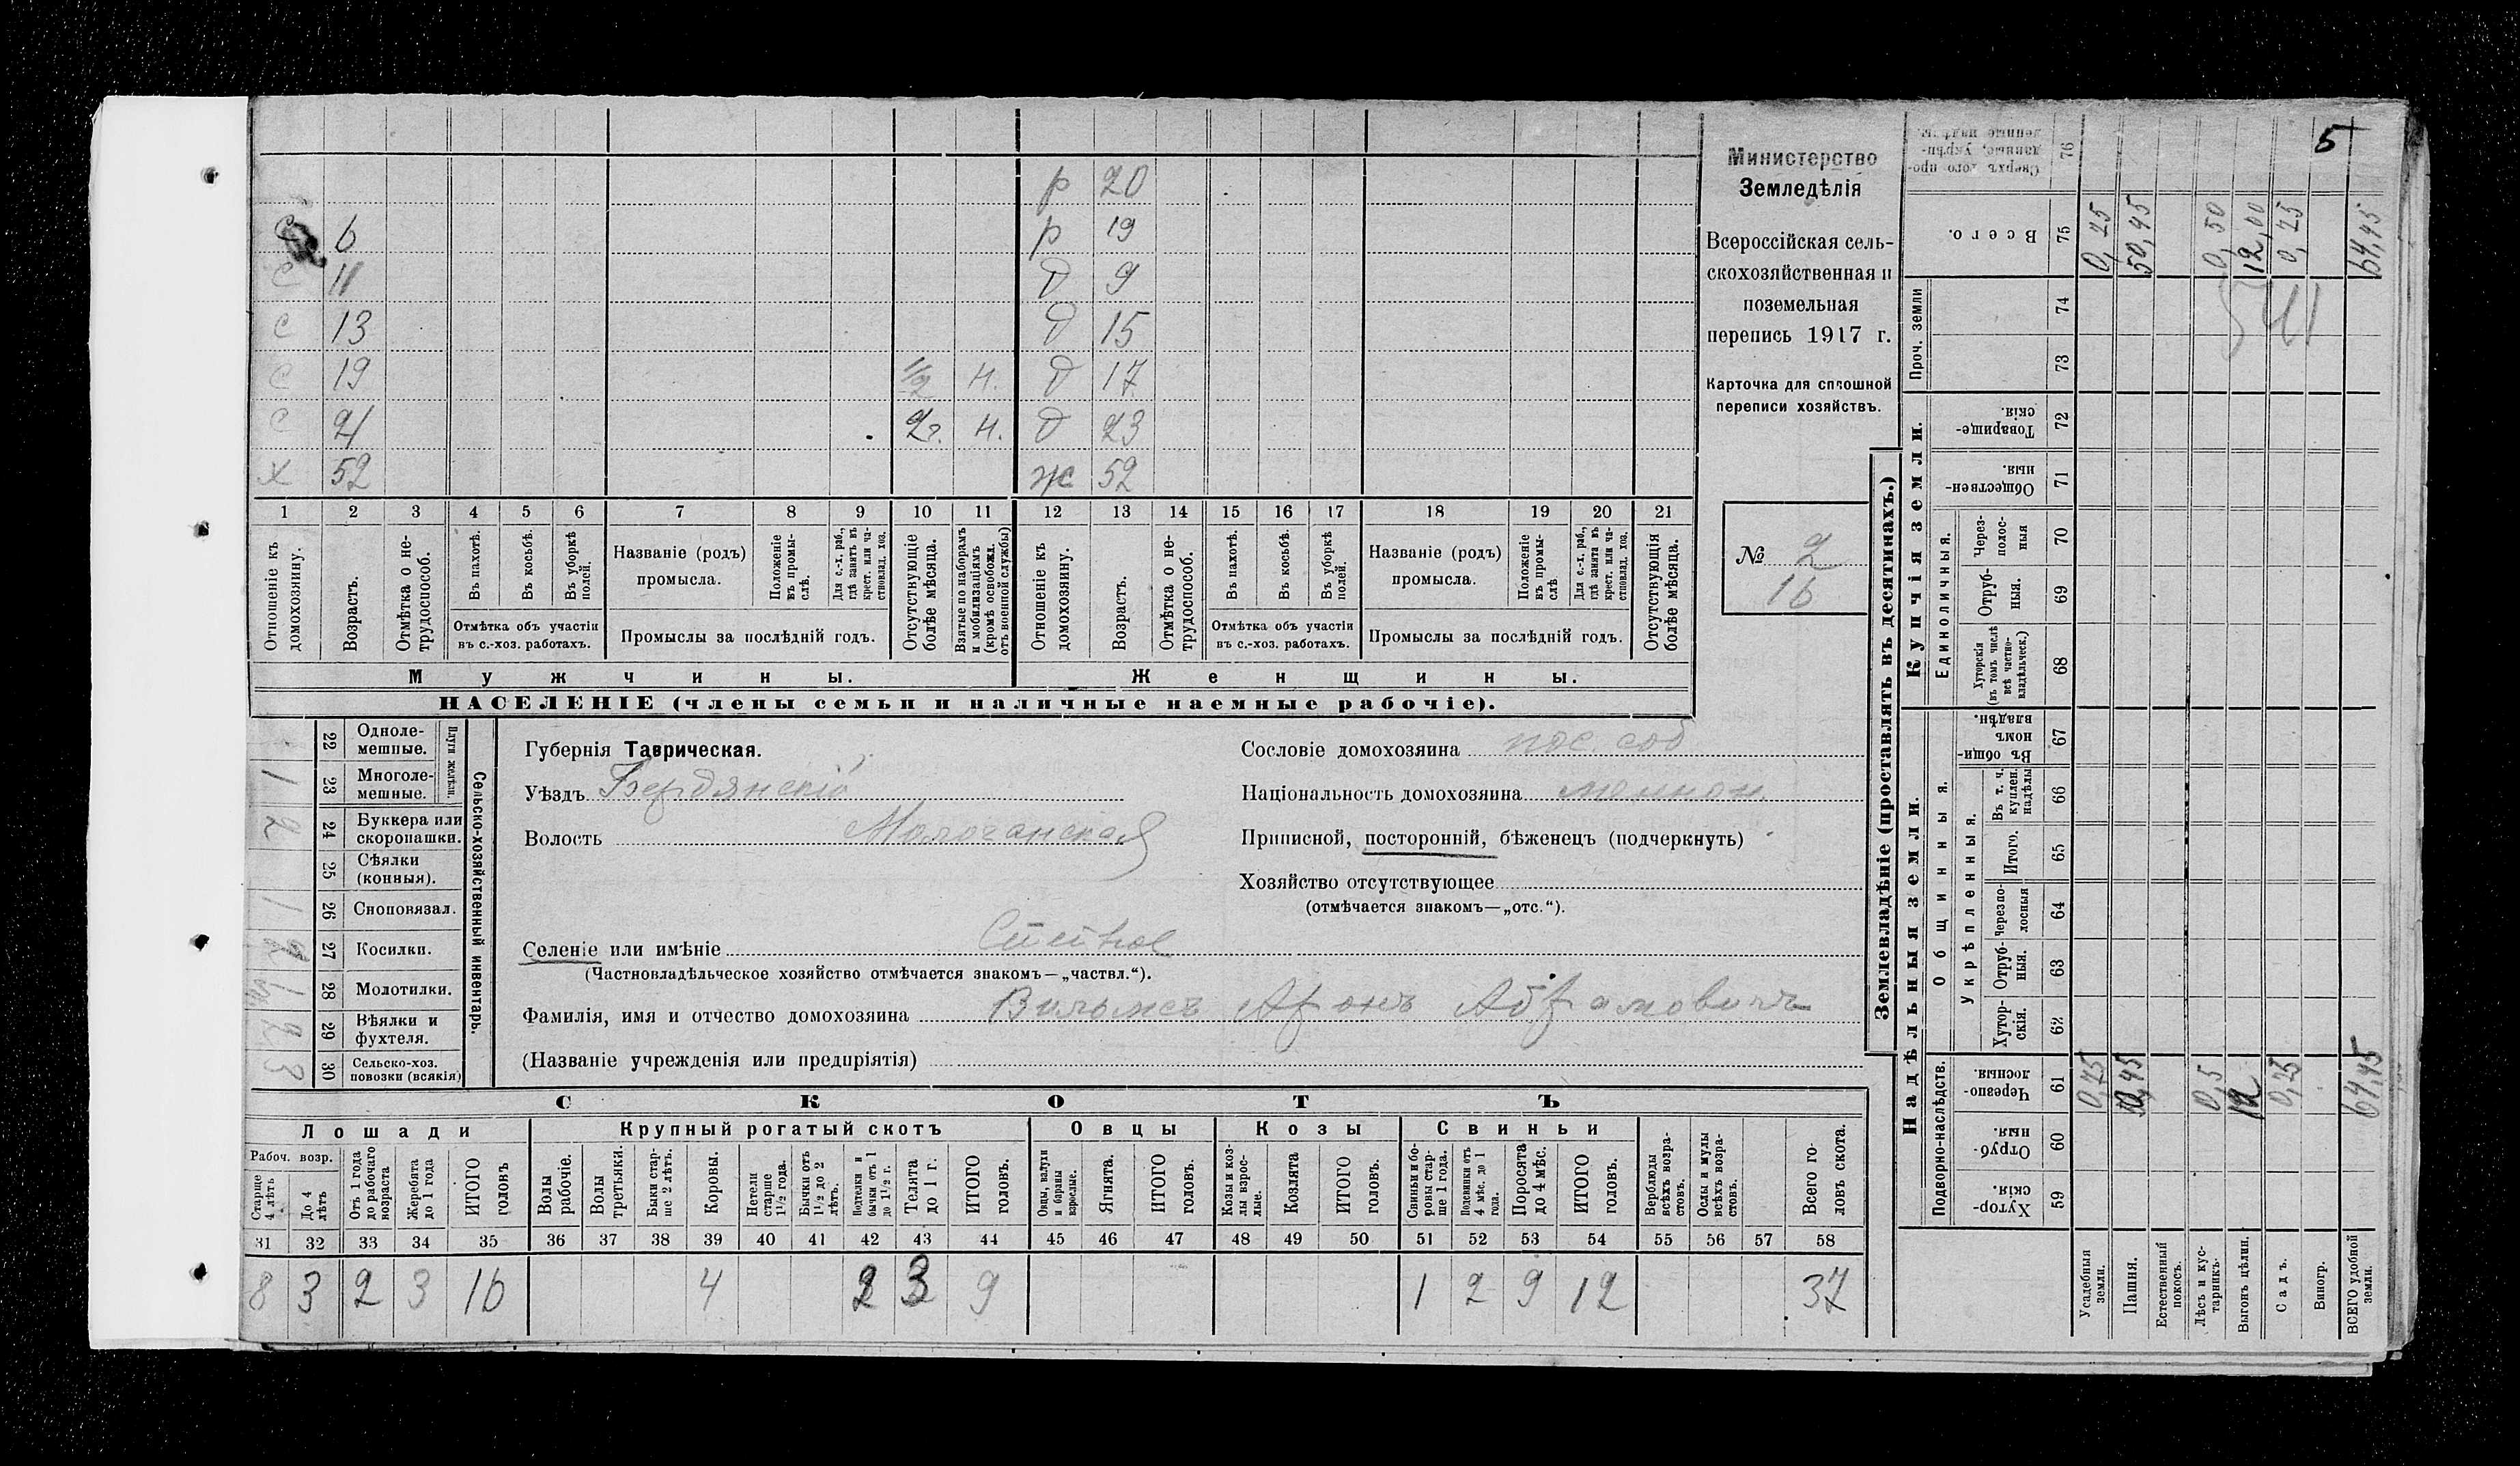 р 20
С 6 р 19
С 11 д 9
С 13 д 15
С 19 1/2 Н. д 17
С 21 2 г. Н. д 23
Х 52 ж 52
1 2 3 4 5 6 7 8 9 10 11 12 13 14 15 16 17 18 19 20 21
Отношеніе къ домохозяину.
Возрастъ.
Отмѣтка о не-трудоспособ.
Въ пахотѣ.
Въ косьбѣ.
Въ уборкѣ полей.
Отмѣтка объ участіи
въ с.-хоз. работахъ.
Названіе (родъ)
промысла.
Положеніе въ промы-слѣ.
Для с.-х. раб., гдѣ занятъ въ крест. или ча-стновлад. хоз.
Промыслы за послѣдній годъ.
Отсутствующіе болѣе мѣсяца.
Взятые по наборамъ и мобилизаціямъ (кромѣ освобожд. отъ военной службы)
Отношеніе къ домохозяину.
Возрастъ.
Отмѣтка о не-трудоспособ.
Въ пахотѣ.
Въ косьбѣ.
Въ уборкѣ полей.
Отмѣтка объ участіи
въ с.-хоз. работахъ.
Названіе (родъ)
промысла.
Положеніе въ промы-слѣ
Для с.-х. раб., гдѣ занята въ крест. или ча-стновлад. хоз.
Промыслы за послѣдній годъ.
Отсутствующія болѣе мѣсяца.
Мужчины.
Женщины.
НАСЕЛЕНІЕ (члены семьи и наличные наемные рабочіе).
Министерство
Земледѣлія
Всероссійская сель-
скохозяйственная и
поземельная
перепись 1917 г.
Карточка для сплошной
переписи хозяйствъ.
№ 2
16
Сельско-хозяйственный инвентарь.
Плуги желѣзн.
22 Одноле-мешные.
1 23 Многоле-мешные.
2 24 Буккера или скоропашки.
25 Сѣялки (конныя).
1 26 Сноповязал.
2 27 Косилки.
28 Молотилки.
2 29 Вѣялки и фухтеля.
3 30 Сельско-хоз. повозки (всякія)
Губернія Таврическая.
Уѣздъ Бердянскій
Волость Молочанская
Селеніе или имѣніе
(Частновладѣльческое хозяйство отмѣчается знакомъ—„частвл.“).
Фамилія, имя и отчество домохозяина Вильмсъ Аронъ Абрамовичъ
(Названіе учрежденія или предпріятія)
Сословіе домохозяина пос. соб
Національность домохозяина меннон.
Приписной, посторонній, бѣженецъ (подчеркнуть)
Хозяйство отсутствующее
(отмѣчается знакомъ—„отс.“).
СКОТЪ
Лошади Крупный рогатый скотъ Овцы Козы Свиньи
Рабоч. возр.
Старше 4 лѣтъ
До 4 лѣтъ
Отъ 1 года до рабочаго возраста
Жеребята до 1 года
ИТОГО головъ
Волы рабочіе.
Волы третьяки.
Быки стар-ше 2 лѣтъ.
Коровы.
Нетели старше 1½ года.
Бычки отъ 1½ до 2 лѣтъ.
Подтелки и бычки отъ 1 до 1½ г.
Телята до 1 г.
ИТОГО головъ.
Овцы, валухи и бараны взрослые.
Ягнята.
ИТОГО головъ.
Козы и коз-лы взрос-лые.
Козлята
ИТОГО головъ.
Свиньи и бо-ровы стар-ше 1 года.
Подсвинки отъ 4 мѣс. до 1 года.
Поросята до 4 мѣс.
ИТОГО головъ.
Верблюды всѣхъ возра-стовъ.
Ослы и мулы всѣхъ возра-стовъ.
Всего го-ловъ скота.
31 32 33 34 35 36 37 38 39 40 41 42 43 44 45 46 47 48 49 50 51 52 53 54 55 56 57 58
8 3 2 3 16 4 2 3 9 1 2 9 12 37
Землевладѣніе (проставлять въ десятинахъ.)
Надѣльныя земли.
Купчія земли.
Проч. земли
Подворно-наслѣдств.
Общинныя.
Укрѣпленныя.
Единоличныя.
Хутор-скія. 59
Отруб-ныя. 60
Черезпо-лосныя. 61
Хутор-скія. 62
Отруб-ныя. 63
Черезпо-лосныя 64
Итого. 65
Въ т. ч. куплен. надѣлы 66
Въ общин-номъ владѣн. 67
Хуторскія (въ томъ числѣ всѣ частно-владѣльческ.) 68
Отруб-ныя. 69
Через-полос-ныя 70
Обществен-ныя. 71
Товарище-скія. 72
73
74
Всего. 75
Сверхъ того про-76
5
541
Усадебныя земли. 0,25 0,25
Пашня. 50,45 50,45
Естественный покосъ.
Лѣсъ и кус-тарникъ. 0,5 0,50
Выгонъ цѣлин. 12 12,00
Садъ. 0,25 0,25
Виногр.
ВСЕГО удобной земли. 64,45 64,45